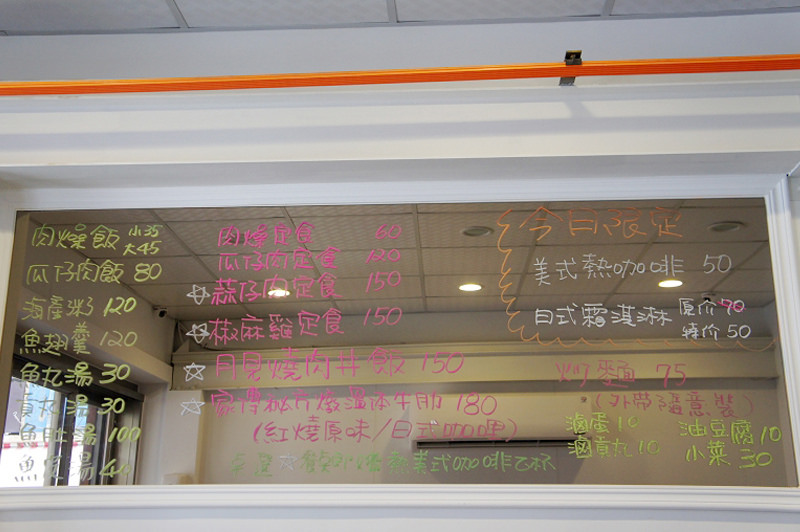 肉燥飯 小35
大45
瓜仔肉飯 80
海產粥 120
魚翅羹 120
魚丸湯 30
貢丸湯 30
魚肚湯 100
魚 湯 40
肉燥定食 60
瓜仔肉定食 120
☆蒜仔肉定食 150
☆椒麻雞定食 150
☆月見燒肉丼飯 150
☆家傳秘方燉溫体牛肋 180
(紅燒原味/日式咖哩)
☆ 美式咖啡乙杯
今日限定
美式熱咖啡 50
日式霜淇淋 原价70
特价50
炒麵 75
(外帶隨意裝)
滷蛋10
滷貢丸10
油豆腐10
小菜30